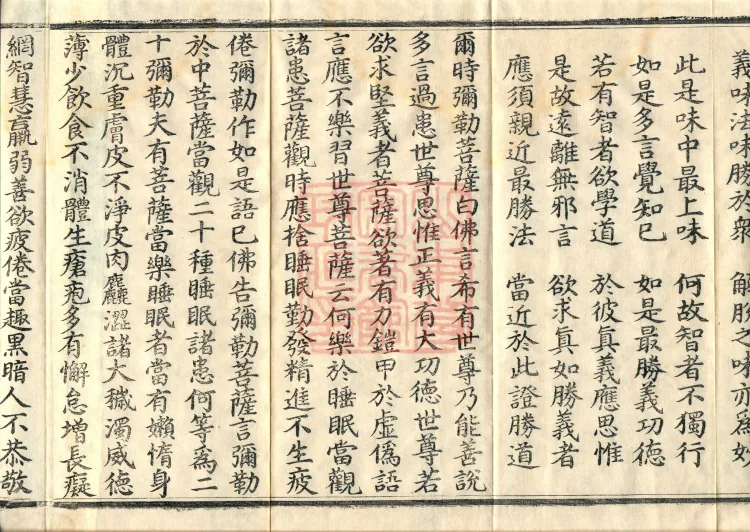 義味法味勝於衆　解脫之味亦爲妙
此是味中最上味　何故智者不獨行
如是多言覺知已　如是最勝義功德
若有智者欲學道　於彼眞義應思惟
是故遠離無邪言　欲求眞如勝義者
應須親近最勝法　當近於此證勝道
爾時彌勒菩薩白佛言希有世尊乃能善說
多言過患世尊思惟正義有大功德世尊若
欲求堅義者菩薩欲著有力鎧甲於虛僞語
言應不樂習世尊菩薩云何樂於睡眠當觀
諸患菩薩觀時應捨睡眠勤發精進不生疲
倦彌勒作如是語已佛告彌勒菩薩言彌勒
於中菩薩當觀二十種睡眠諸患何等爲二
十彌勒夫有菩薩當樂睡眠者當有嬾惰身
體沉重膚皮不淨皮肉麤澀諸大穢濁威德
薄少飲食不消體生瘡疱多有懈怠增長癡
網智慧羸弱善欲疲倦當趣黑暗人不恭敬